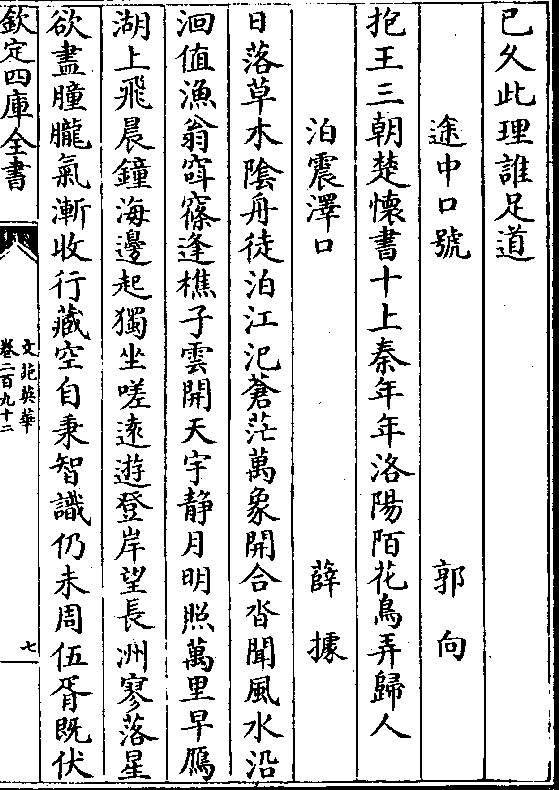 已久此理誰足道
途中口號　郭向
抱王三朝楚懷書十上秦年年洛陽陌花鳥弄歸人
泊震澤口　薛據
日落草木陰舟徒泊江汜蒼茫萬象開合沓聞風水沿
洄值漁翁窅窱逢樵子雲開天宇静月明照萬里早鴈
湖上飛晨鐘海邊起獨坐嗟逺遊登岸望長洲寥落星
欲盡朣朧氣漸收行藏空自秉智識仍未周伍胥既伏
欽定四庫全書
文苑英華
卷二百九十二
七